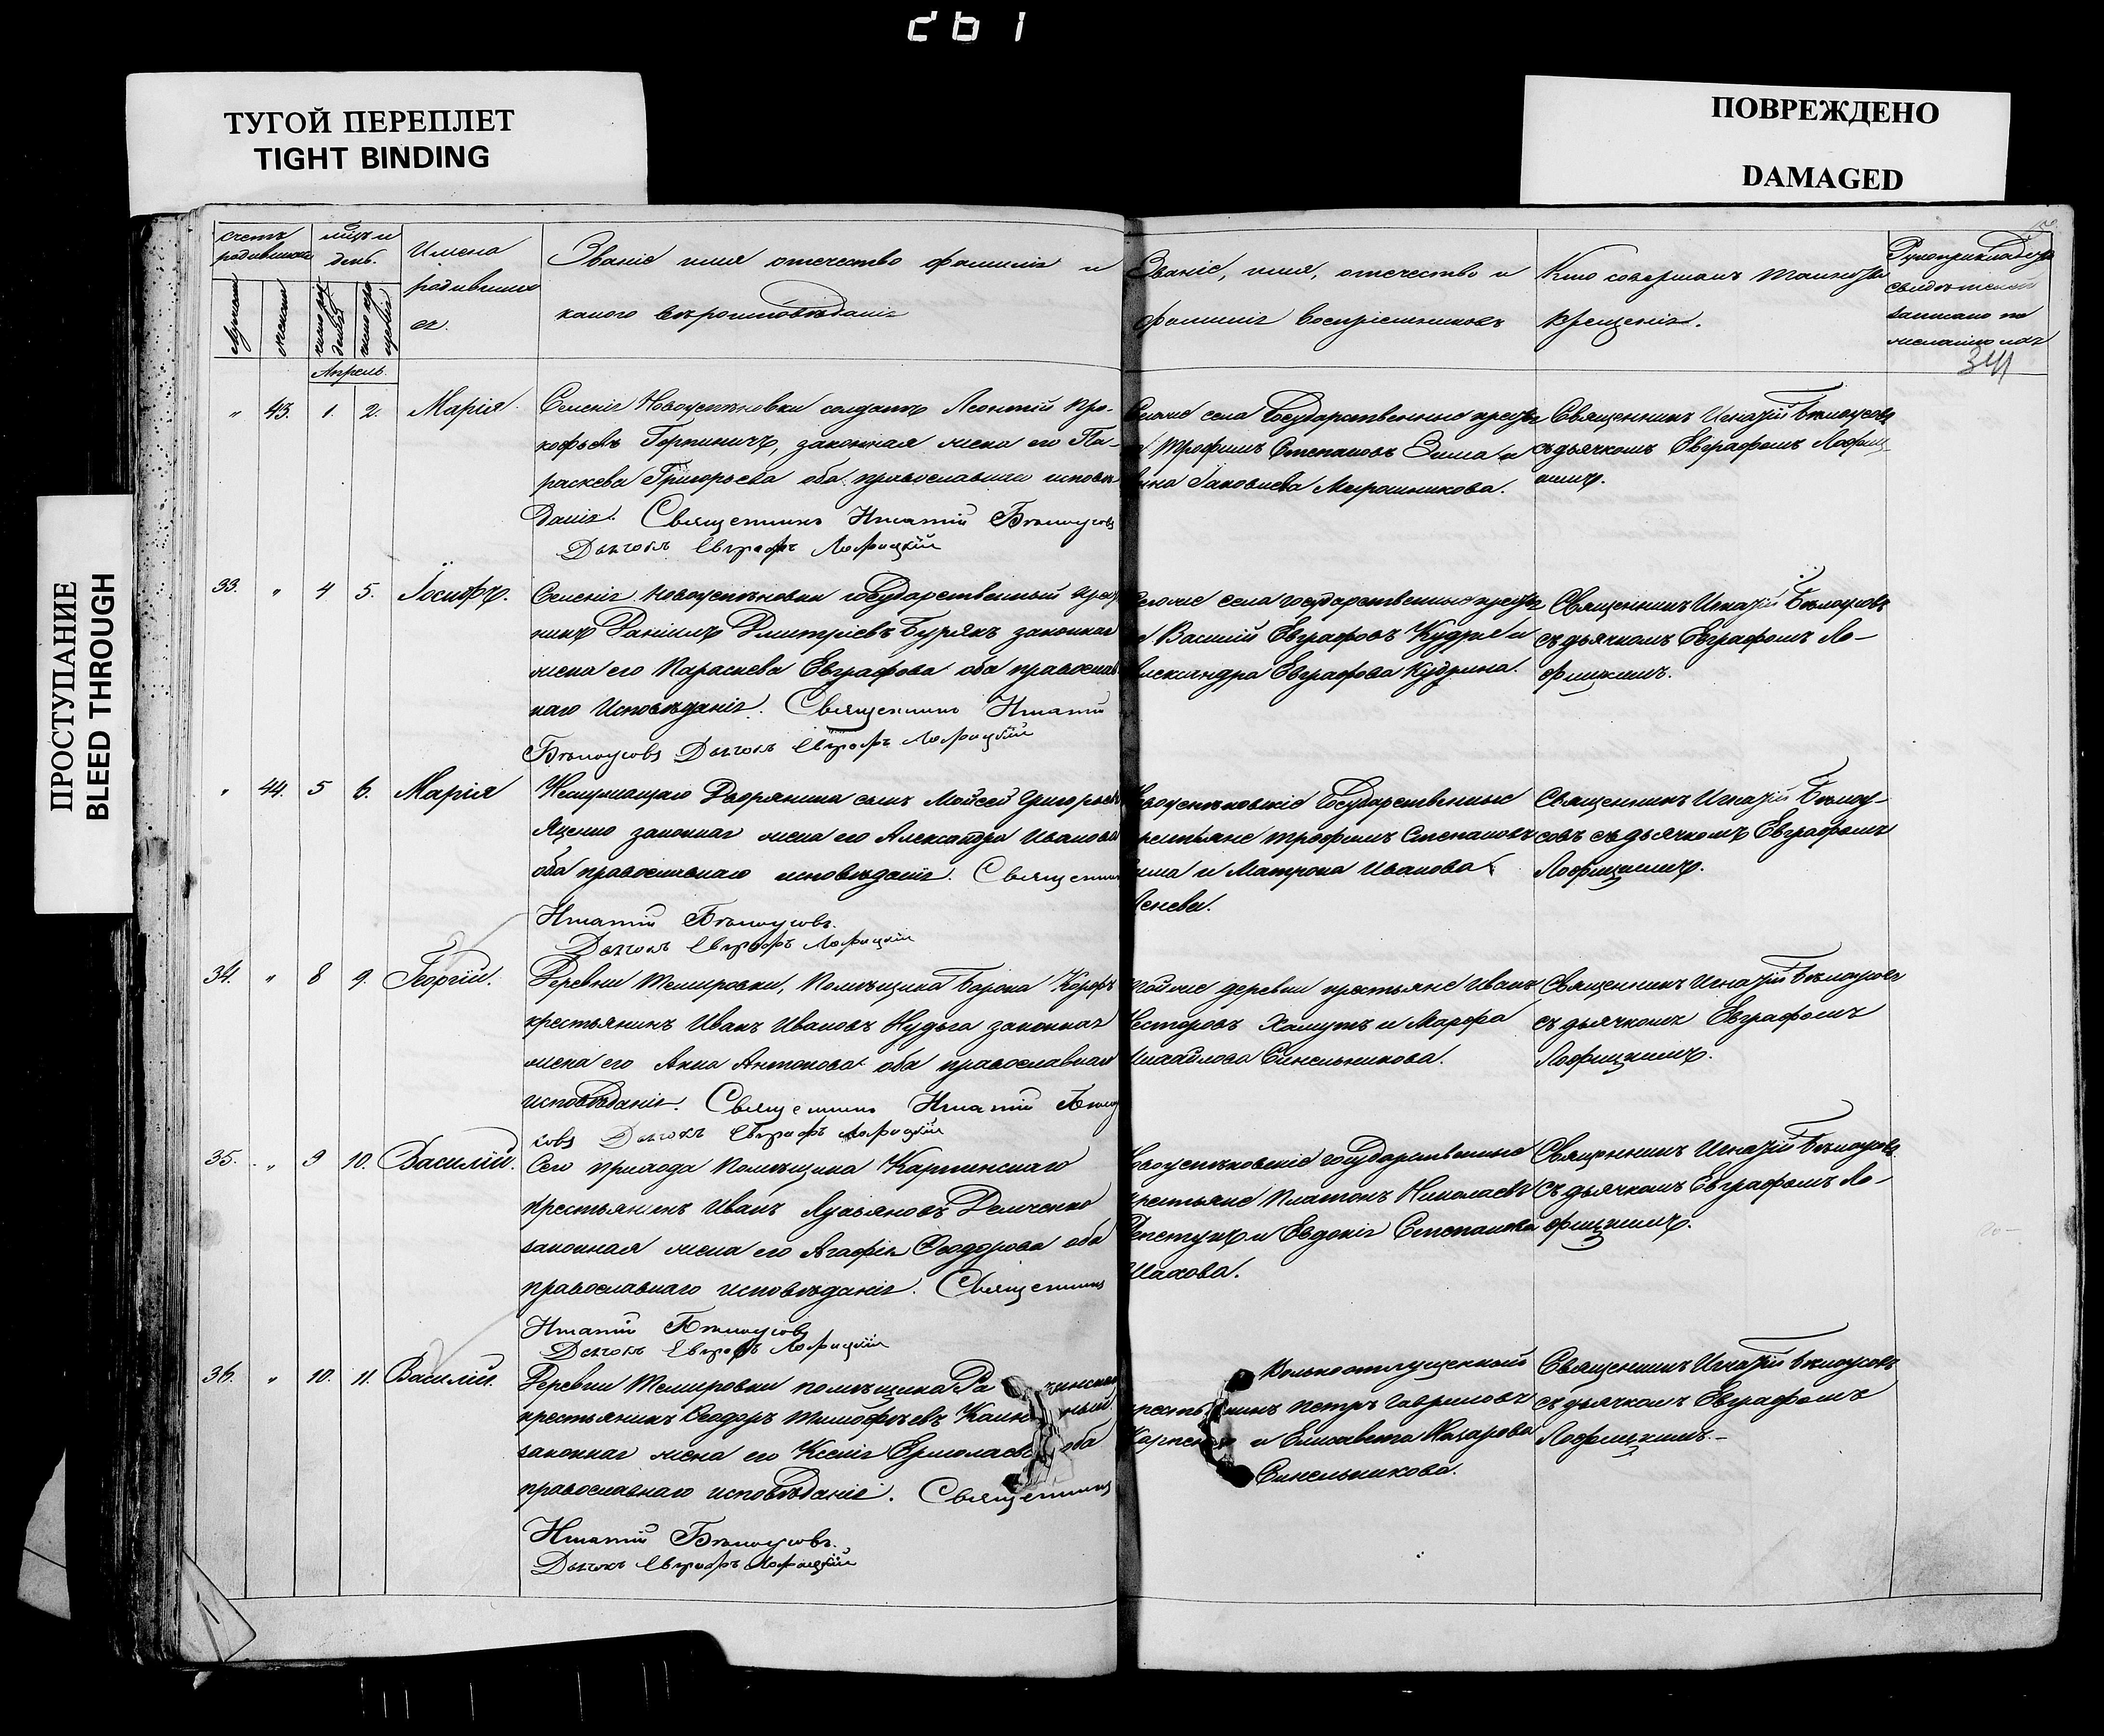 261
ТУГОЙ ПЕРЕПЛЕТ
TIGHT BINDING
ПОВРЕЖДЕНО
DAMAGED
ПРОСТУПАНИЕ
BLEED THROUGH
счетъ родившихся
мѣсяцъ и день.
Имена родившихся.
Званіе имя отечество фамилія и
какого вѣроисповѣданія
Званіе, имя, отечество и
фамилія воспріемниковъ
Кто совершалъ таинство
крещенія.
Рукоприкладство
свидѣтелей
записано по
желанію
341
Апрель.
" 43. 1. 2. Марія
Селенія Новоуспѣновки солдатъ Леонтій Про-
кофьевъ, законная жена его Па-
раскева Григорьева оба православнаго исповѣ
данія. Священникъ Игнатій Бѣлоусовъ
Дьячокъ Евграфъ Лофицкій
села Государственные кресть
Трофимъ Степановъ Зима и
Яковлева Мирошникова.
Священникъ Игнатій Бѣлоусовъ
съ дьячкомъ Евграфомъ Лофиц
кимъ.
33. " 4 5. Іосифъ.
Селенія Новоуспѣновки государственный крес
нинъ Даніилъ Дмитріевъ Бурякъ законная
жена его Параскева Евграфова оба православ
наго Исповѣданія. Священникъ Игнатій
Бѣлоусовъ Дьячокъ Евграфъ Лофицкій
села государственные кресть
Василій Евграфовъ Кудря и
лександра Евграфова Кудрина.
Священникъ Игнатій Бѣлоусовъ
съ дьячкомъ Евграфомъ Ло-
фицкимъ.
" 44. 5 6. Марія
Неслужащаго Дворянина сынъ Мойсей Григорьевъ
Яценко законная жена его Александра Иванова
оба православнаго исповѣданія. Священник
Игнатій Бѣлоусовъ.
Дьячокъ Евграфъ Лофицкій
воуспѣновскіе Государственные
рестьяне Трофимъ Степановъ
има и Матрона Иванова
Священникъ Игнатій Бѣлоу-
совъ съ дьячкомъ Евграфомъ
Лофицкимъ.
34. " 8 9. Георгій.
Деревни Темировки, Помѣщика Барона Корфъ
крестьянинъ Иванъ Ивановъ Нудьга законная
жена его Анна Антонова оба православнаго
исповѣданія. Священникъ Игнатій Бѣлоу
совъ Дьячокъ Евграфъ Лофицкій
деревни крестьяне Иванъ
есторовъ Хомутъ и Марфа
ихайлова Синельникова.
Священникъ Игнатій Бѣлоусовъ
съ дьячкомъ Евграфомъ
Лофицкимъ.
35. " 9 10. Василій.
Сего прихода помѣщика Карпенскаго
крестьянинъ Иванъ Лукьяновъ Демченко
законная жена его Агафія Ѳеодорова оба
православнаго исповѣданія. Священникъ
Игнатій Бѣлоусовъ
Дьячокъ Евграфъ Лофицкій
воуспѣновскіе государственные
рестьяне Платонъ Николаевъ
и Евдокія Степанова
Шахова.
Священникъ Игнатій Бѣлоусовъ
съ дьячкомъ Евграфомъ Ло-
фицкимъ.
36. " 10. 11. Василій.
Деревни Темировки помѣщика
крестьянинъ Ѳеодоръ Тимофѣевъ
законная жена его Ксенія Ермолаева оба
православнаго исповѣданія. Священникъ
Игнатій Бѣлоусовъ.
Дьячокъ Евграфъ Лофицкій
Вольноотпущенный
Петръ Гавриловъ
и Елисавета Назарова
Синельникова.
Священникъ Игнатій Бѣлоусовъ
съ дьячкомъ Евграфомъ
Лофицкимъ.-